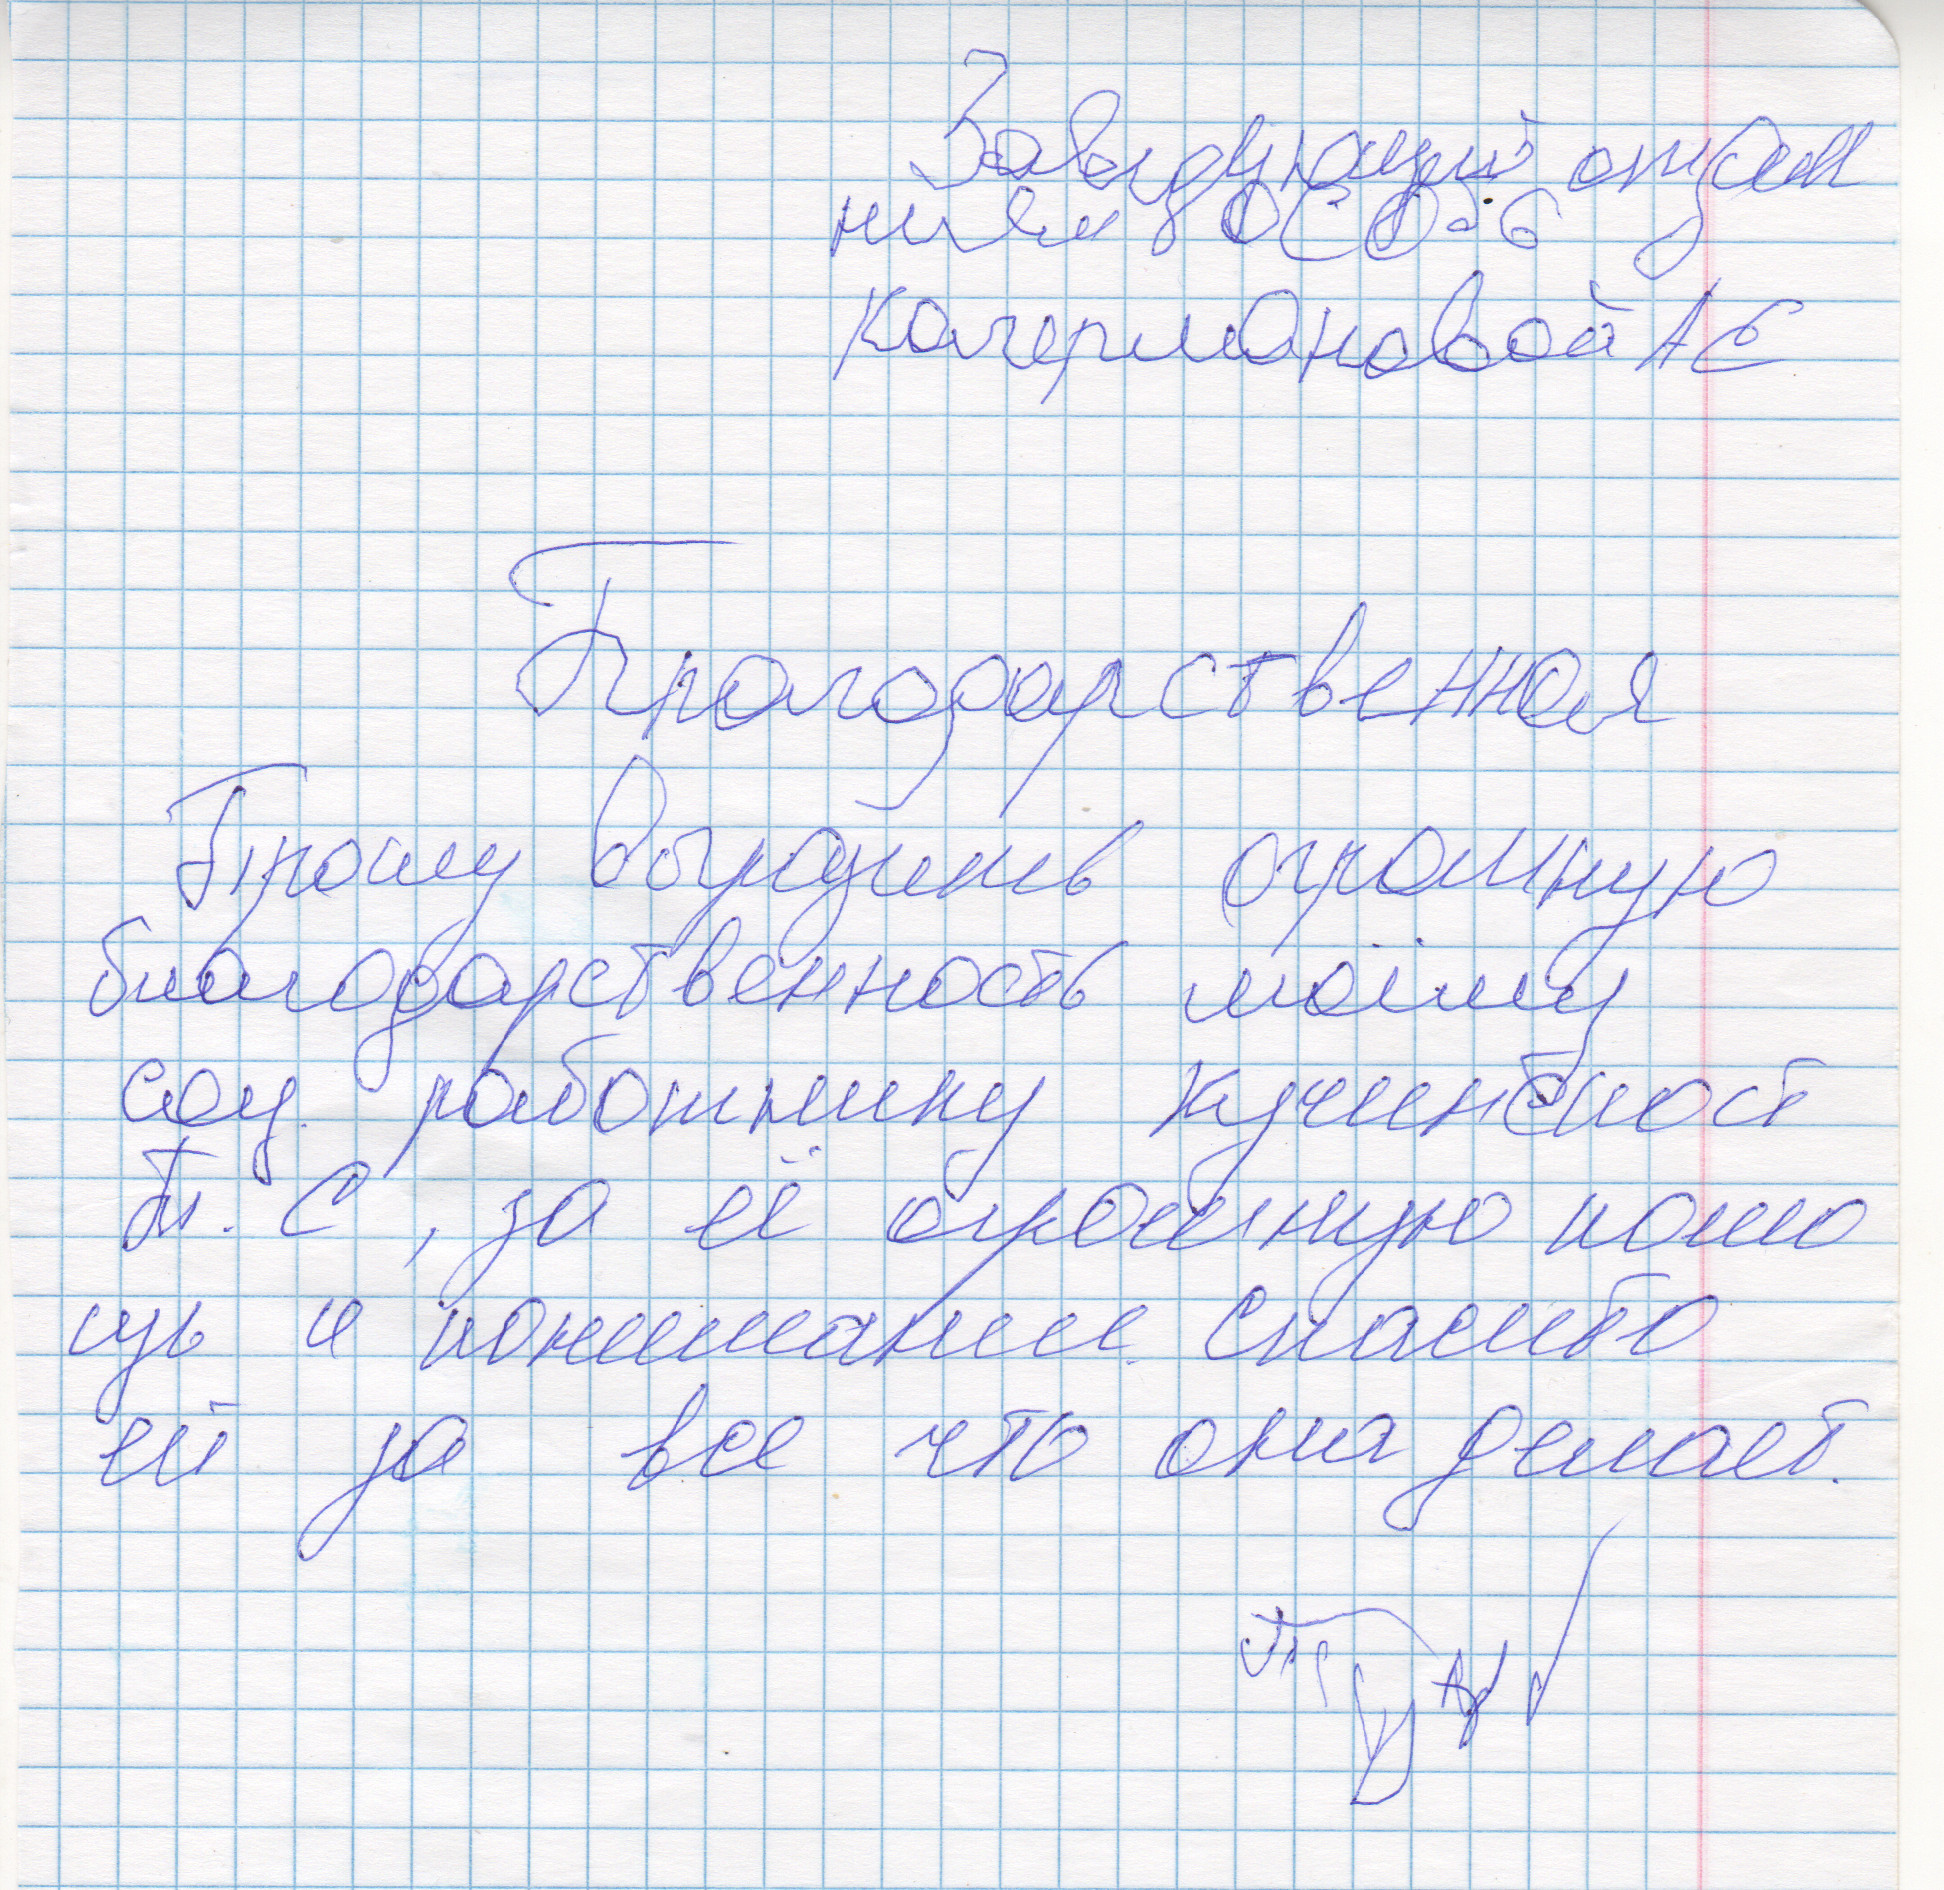 Заведующий отделе
нием ОСО-6
Качермановой А Е
Благодарственная
Прошу выразить огромную
благодарственность моему
соц. работнику
Т. С, за её огромную помо
щь и понимание. Спасибо
ей за все что она делает.